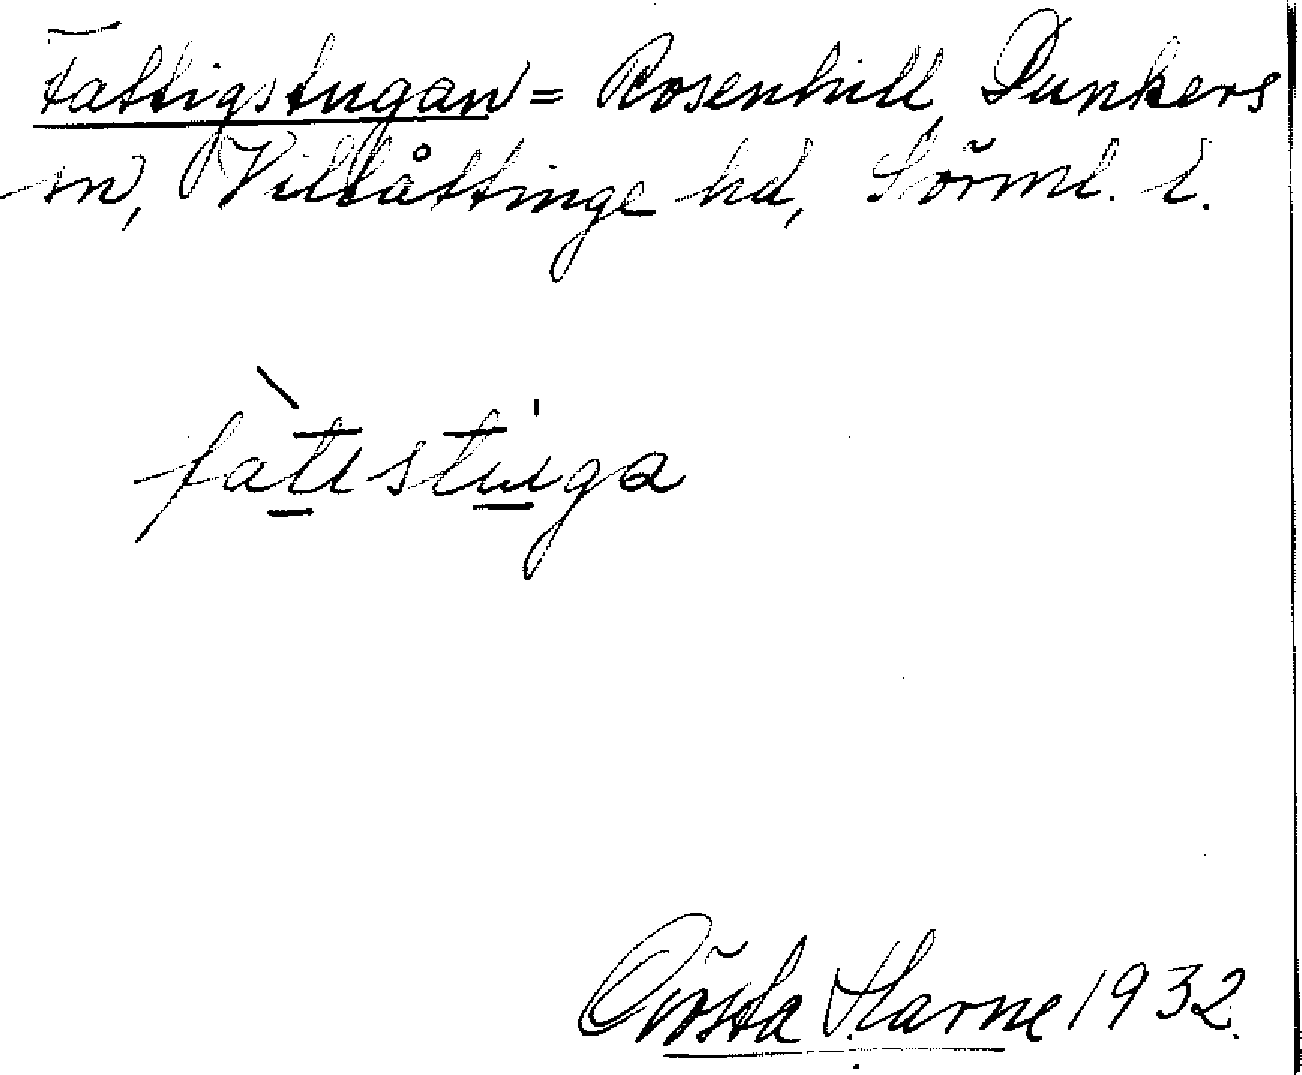 Fattigstugan = Rosenhill, Dunkers
sn, Villåttinge hd, Sörml. l.
fàtistu̇ga
Gösta Harne 1932.